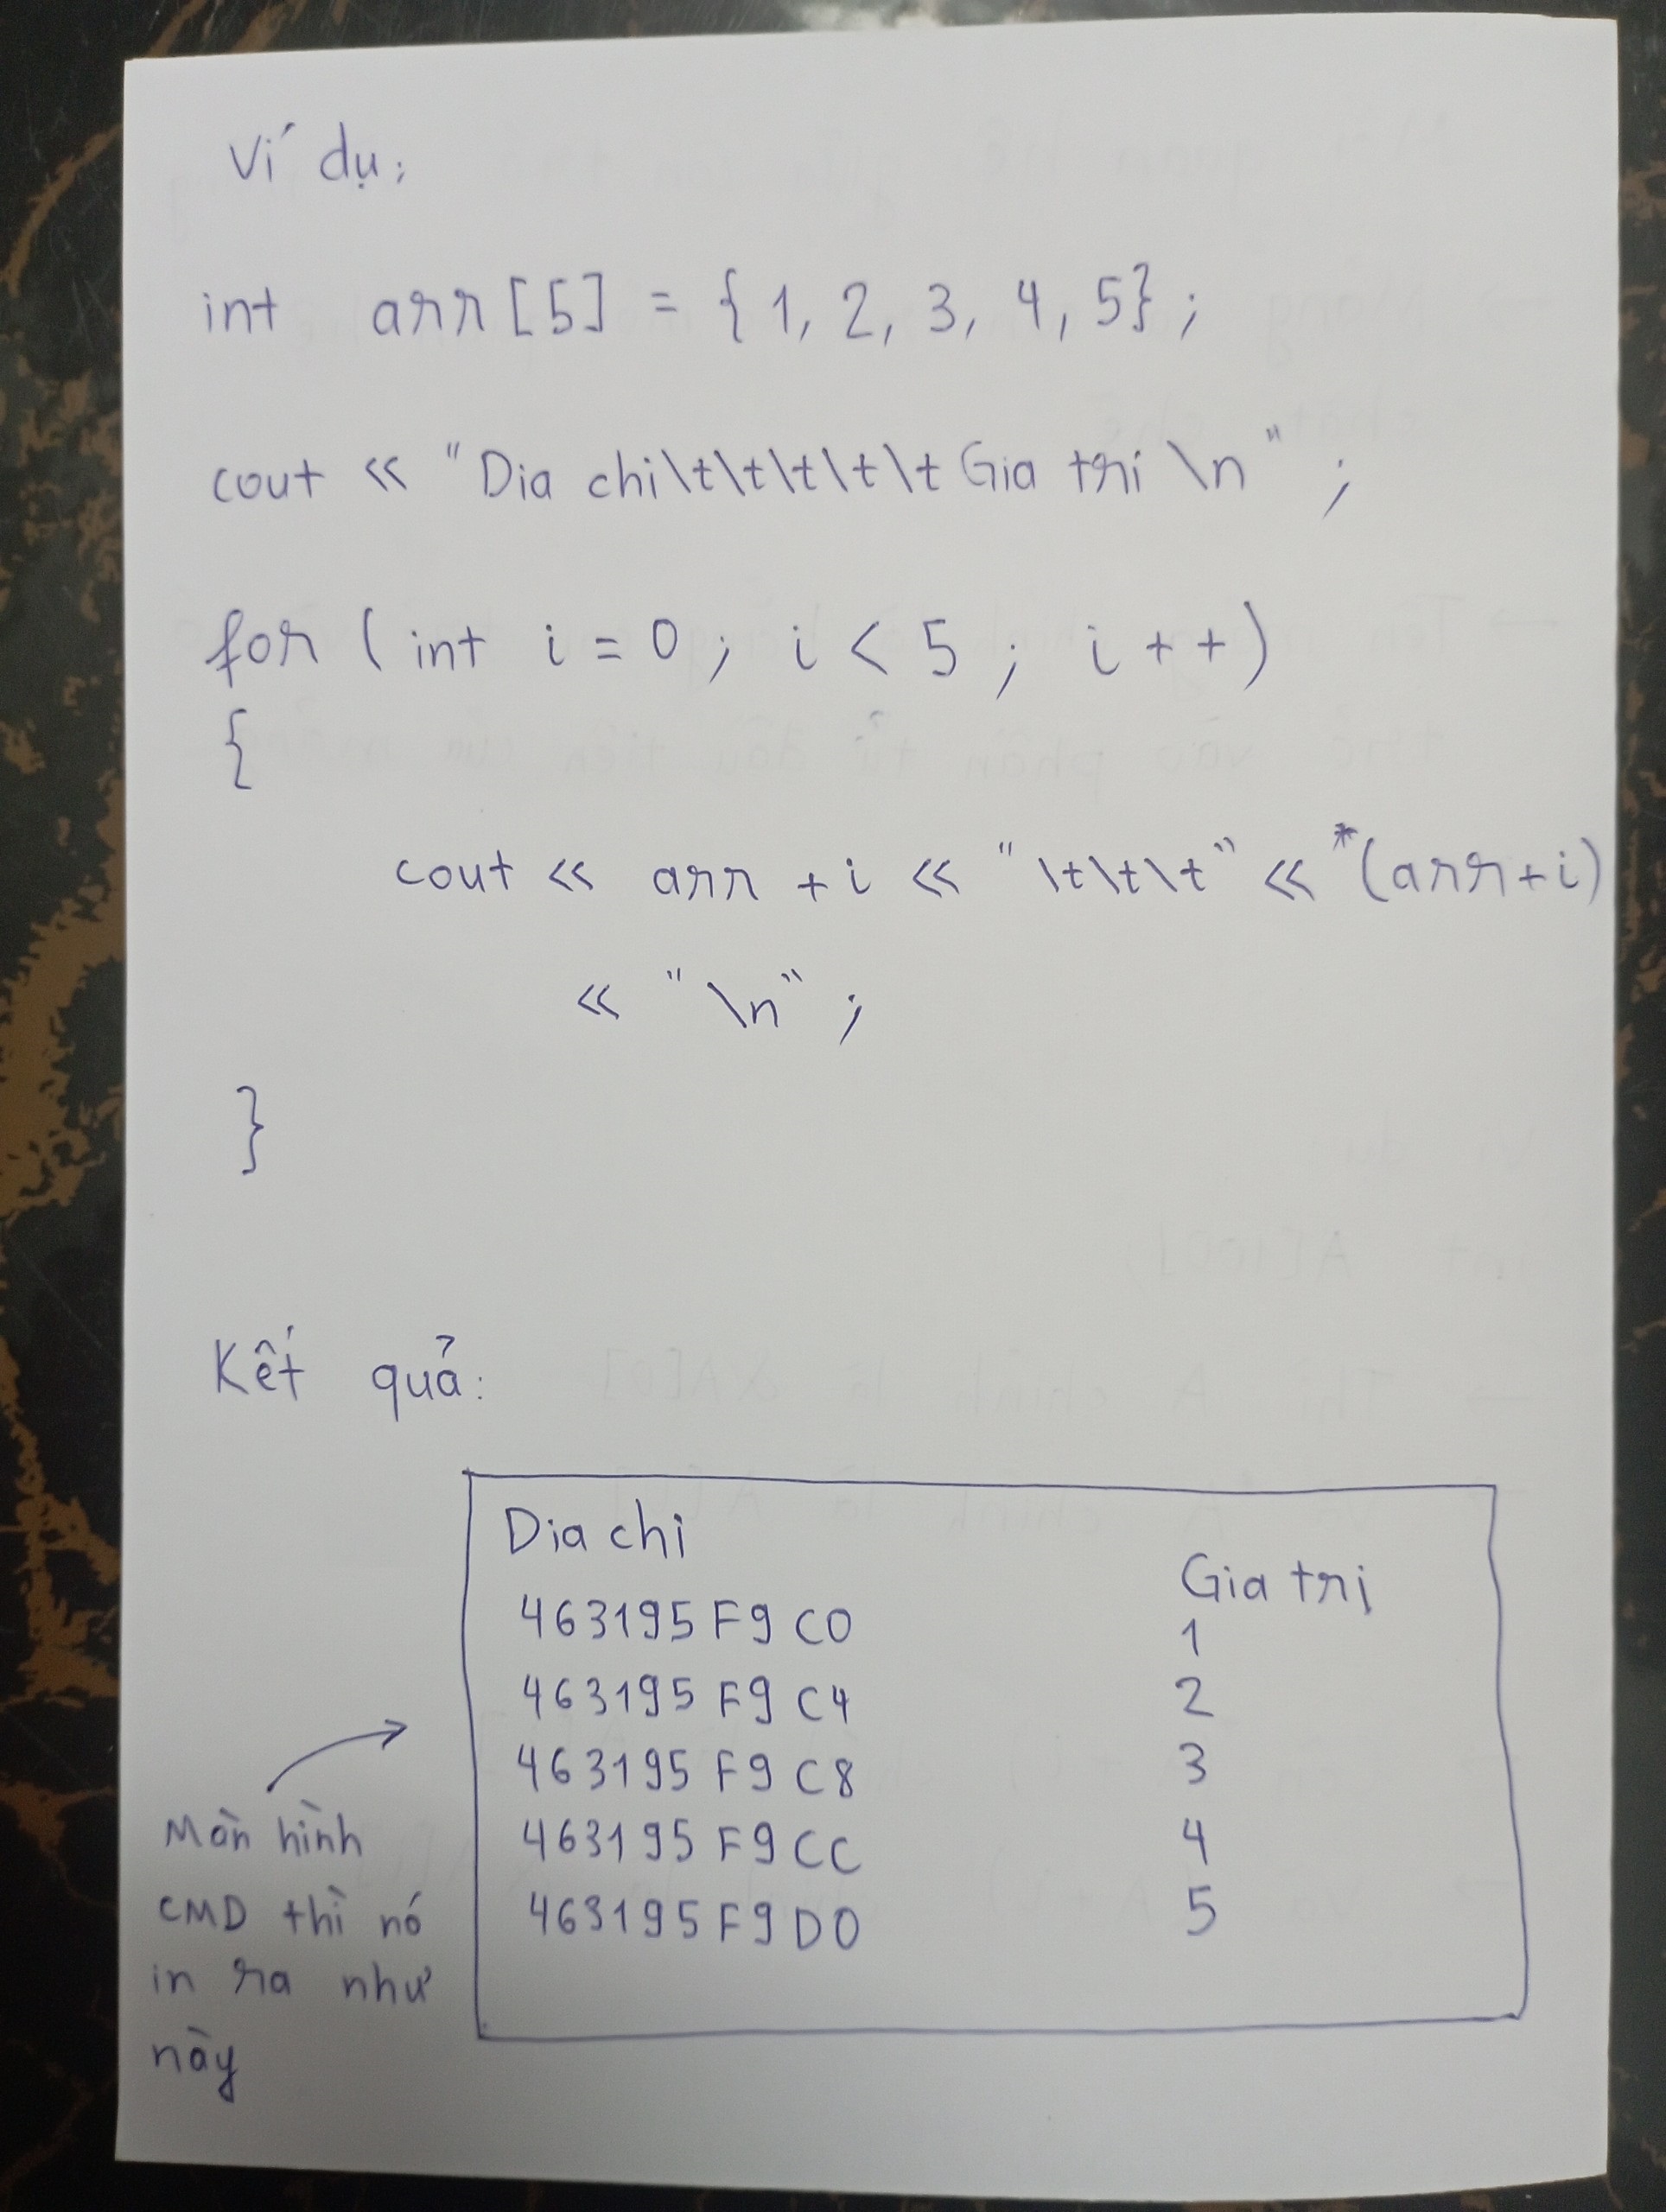 Ví dụ:
int arr[5] = {1, 2, 3, 4, 5};
cout << "Dia chi\t\t\t\t\t Gia tri \n";
for (int i = 0; i < 5; i++)
{
cout << arr + i << "\t\t\t" << *(arr+i)
<< "\n";
}
Kết quả:
Dia chi Gia trị
463195F9C0 1
463195F9C4 2
463195F9C8 3
463195F9CC 4
463195F9D0 5
Màn hình
CMD thì nó
in ra như
này